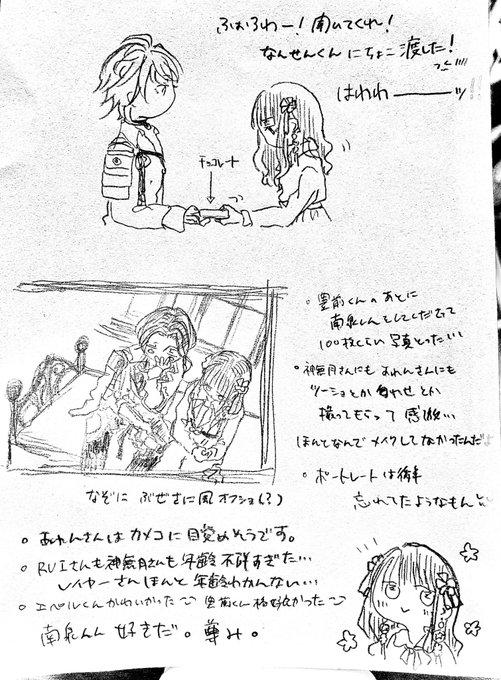 ふぉふわー！聞いてくれ！
なんせんくんにちょこ渡した！
はわわーーッ!!
チョコレート
・豊前くんのあとに
南泉くんとしてくださって
100枚くらい写真とった…
・神無月さんにも あれんさんにも
ツーショとか合わせとか
撮ってもらって 感激…
ほんとなんでメイクしてなかったんだよ
・ポートレートは術
忘れてたようなもん
なぞに ぶぜさに風 オフショ(？)
・あれんさんはカメコに目覚めそうです。
・RUIさんも神無月さんも年齢不詳すぎた…
レイヤーさんほんと年齢わかんない…
・エペルくんかわいかった 豊前くん格好良かった
南泉くん 好きだ。尊み。